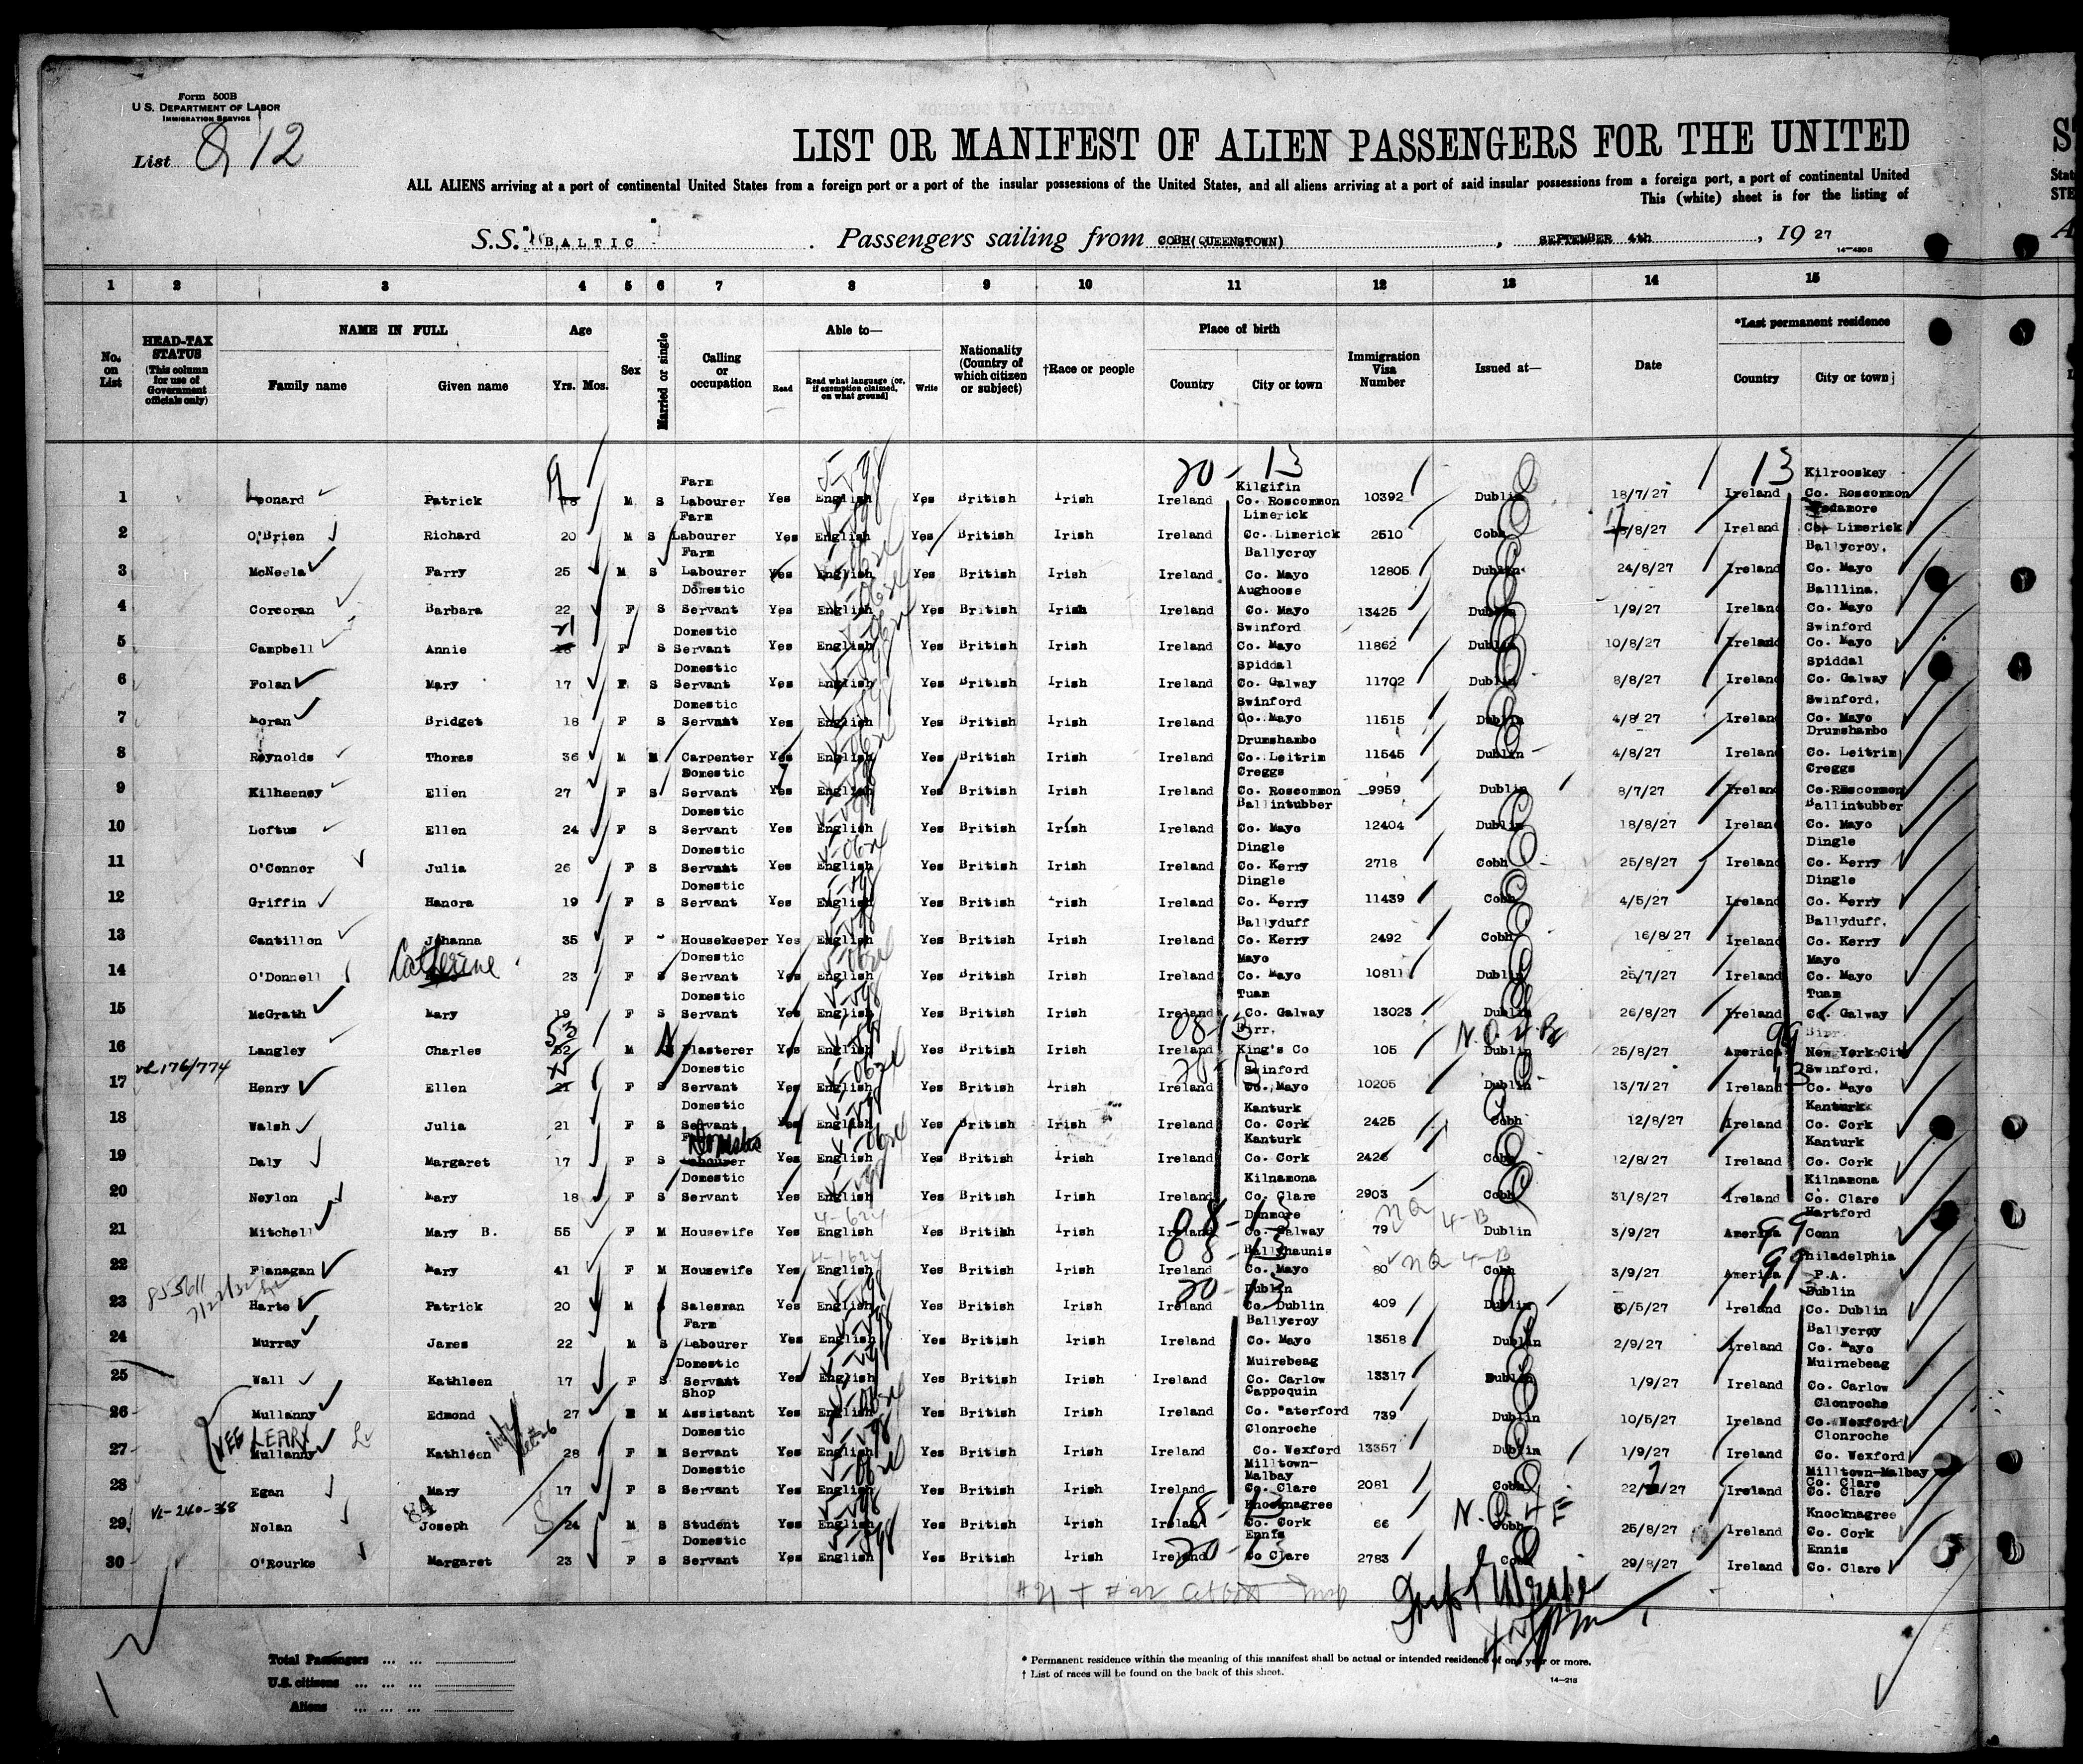 Form 500B
U.S. DEPARTMENT OF LABOR
IMMIGRATION SERVICE
List 8 12
LIST OR MANIFEST OF ALIEN PASSENGERS FOR THE UNITED
ALL ALIENS arriving at a port of continental United States from a foreign port or a port of the insular possessions of the United States, and all aliens arriving at a port of said insular possessions from a foreign port, a port of continental United
This (white) sheet is for the listing of
S.S. "BALTIC" . Passengers sailing from COBH(QUEENSTOWN) , SEPTEMBER 4th , 19 27
14-480B
1 2 3 4 5 6 7 8 9 10 11 12 13 14 15
No. on List
HEAD-TAX STATUS (This column for use of Government officials only)
NAME IN FULL Family name Given name
Age Yrs. Mos.
Sex
Married or single
Calling or occupation
Able to— Read Read what language (or, if exemption claimed, on what ground) Write
Nationality (Country of which citizen or subject)
†Race or people
Place of birth Country City or town
Immigration Visa Number
Issued at—
Date
*Last permanent residence Country City or town
20-13 13
1 Leonard Patrick 18 M S Farm Labourer Yes English Yes British Irish Ireland Kilgifin Co. Roscommon 10392 Dublin 18/7/27 Ireland Kilrooskey Co. Roscommon
2 O'Brien Richard 20 M S Farm Labourer Yes English Yes British Irish Ireland Limerick Co. Limerick 2510 Cobh /8/27 Ireland Co. Limerick
3 McNeela Farry 25 M S Farm Labourer Yes English Yes British Irish Ireland Ballycroy Co. Mayo 12805 Dublin 24/8/27 Ireland Ballycroy, Co. Mayo
4 Corcoran Barbara 22 F S Domestic Servant Yes English Yes British Irish Ireland Aughoose Co. Mayo 13425 Dublin 1/9/27 Ireland Balllina. Co. Mayo
5 Campbell Annie 21 18 F S Domestic Servant Yes English Yes British Irish Ireland Swinford Co. Mayo 11862 Dublin 10/8/27 Ireland Swinford Co. Mayo
6 Folan Mary 17 F S Domestic Servant Yes English Yes British Irish Ireland Spiddal Co. Galway 11702 Dublin 8/8/27 Ireland Spiddal Co. Galway
7 Moran Bridget 18 F S Domestic Servant Yes English Yes British Irish Ireland Swinford Co. Mayo 11515 Dublin 4/8/27 Ireland Swinford, Co. Mayo
8 Reynolds Thomas 36 M M Carpenter Yes English Yes British Irish Ireland Drumshambo Co. Leitrim 11545 Dublin 4/8/27 Ireland Drumshambo Co. Leitrim
9 Kilheeney Ellen 27 F S Domestic Servant Yes English Yes British Irish Ireland Creggs Co. Roscommon 9959 Dublin 8/7/27 Ireland Creggs Co. Roscommon
10 Loftus Ellen 24 F S Domestic Servant Yes English Yes British Irish Ireland Ballintubber Co. Mayo 12404 Dublin 18/8/27 Ireland Ballintubber Co. Mayo
11 O'Connor Julia 26 F S Domestic Servant Yes English Yes British Irish Ireland Dingle Co. Kerry 2718 Cobh 25/8/27 Ireland Dingle Co. Kerry
12 Griffin Hanora 19 F S Domestic Servant Yes English Yes British Irish Ireland Dingle Co. Kerry 11439 Cobh 4/5/27 Ireland Dingle Co. Kerry
13 Cantillon Johanna 35 F Housekeeper Yes English Yes British Irish Ireland Ballyduff Co. Kerry 2492 Cobh 16/8/27 Ireland Ballyduff, Co. Kerry
14 O'Donnell Catherine 23 F S Domestic Servant Yes English Yes British Irish Ireland Mayo Co. Mayo 10811 Dublin 25/7/27 Ireland Mayo Co. Mayo
15 McGrath Mary 19 F S Domestic Servant Yes English Yes British Irish Ireland Tuam Co. Galway 13023 Dublin 26/8/27 Ireland Tuam Co. Galway
16 Langley Charles 53 52 M Plasterer Yes English Yes British Irish Ireland 08-13 Birr. King's Co 105 Dublin 25/8/27 America 99 New York City
17 Henry Ellen 21 F S Domestic Servant Yes English Yes British Irish Ireland Swinford Co. Mayo 10205 Dublin 13/7/27 Ireland Swinford, Co. Mayo
18 Walsh Julia 21 F S Domestic Servant Yes English Yes British Irish Ireland Kanturk Co. Cork 2425 Cobh 12/8/27 Ireland Kanturk Co. Cork
19 Daly Margaret 17 F S Domestic Labourer Yes English Yes British Irish Ireland Kanturk Co. Cork 2426 Cobh 12/8/27 Ireland Kanturk Co. Cork
20 Neylon Mary 18 F S Domestic Servant Yes English Yes British Irish Ireland Kilnamona Co. Clare 2903 Cobh 31/8/27 Ireland Kilnamona Co. Clare
21 Mitchell Mary B. 55 F M Housewife Yes English Yes British Irish Ireland 08-13 Dunmore Co. Galway 79 Dublin 3/9/27 America 99 Hartford Conn
22 Flanagan Mary 41 F M Housewife Yes English Yes British Irish Ireland Ballyhaunis Co. Mayo 80 Cobh 3/9/27 America 99 Philadelphia P.A.
23 Harte Patrick 20 M S Salesman Yes English Yes British Irish Ireland 20-13 Dublin Co Dublin 409 Dublin /5/27 Ireland Dublin Co. Dublin
24 Murray James 22 M S Farm Labourer Yes English Yes British Irish Ireland Ballycroy Co. Mayo 13518 Dublin 2/9/27 Ireland Ballycroy Co. Mayo
25 Wall Kathleen 17 F S Domestic Servant Yes English Yes British Irish Ireland Muirebeag Co. Carlow 13317 Dublin 1/9/27 Ireland Muirnebeag Co. Carlow
26 Mullanny Edmond 27 M M Shop Assistant Yes English Yes British Irish Ireland Cappoquin Co. Waterford 739 Dublin 10/5/27 Ireland Clonroche Co. Wexford
NEE LEARY
27 Mullanny Kathleen 28 F M Domestic Servant Yes English Yes British Irish Ireland Clonroche Co. Wexford 13357 Dublin 1/9/27 Ireland Clonroche Co. Wexford
28 Egan Mary 17 F S Domestic Servant Yes English Yes British Irish Ireland Milltown-Malbay Co. Clare 2081 Cobh 22/7/27 Ireland Milltown-Malbay Co. Clare Co. Clare
29 Nolan Joseph 24 M S Student Yes English Yes British Irish Ireland 18-13 Knocknagree Co. Cork 66 Cobh 25/8/27 Ireland Knocknagree Co. Cork
30 O'Rourke Margaret 23 F S Domestic Servant Yes English Yes British Irish Ireland 20-13 Ennis Co Clare 2783 Cobh 29/8/27 Ireland Ennis Co. Clare
Total Passengers ... ...
U.S. citizens ... ... ...
Aliens ... ... ...
* Permanent residence within the meaning of this manifest shall be actual or intended residence of one year or more.
† List of races will be found on the back of this sheet.
14-218